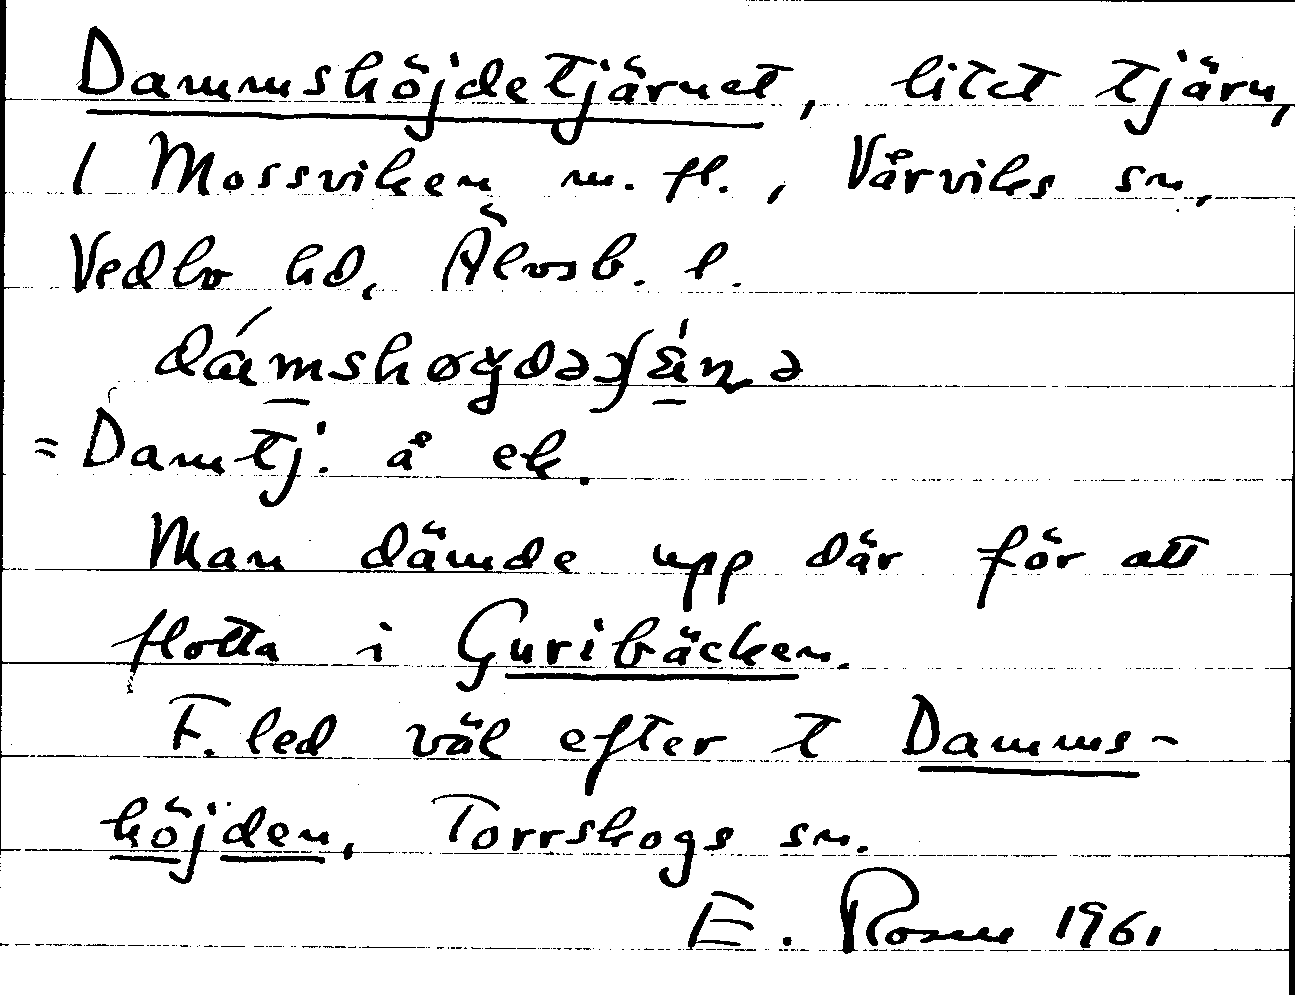 Dammshöjdetjärnet, litet tjärn,
i Mossviken m. fl., Vårviks sn,
Vedbo hd, Älvsb. l.
= Damtj. å ek.
Man dämde upp där för att
flotta i Guribäcken.
F. led väl efter t Damms-
höjden, Torrskogs sn.
E. Rosm 1961